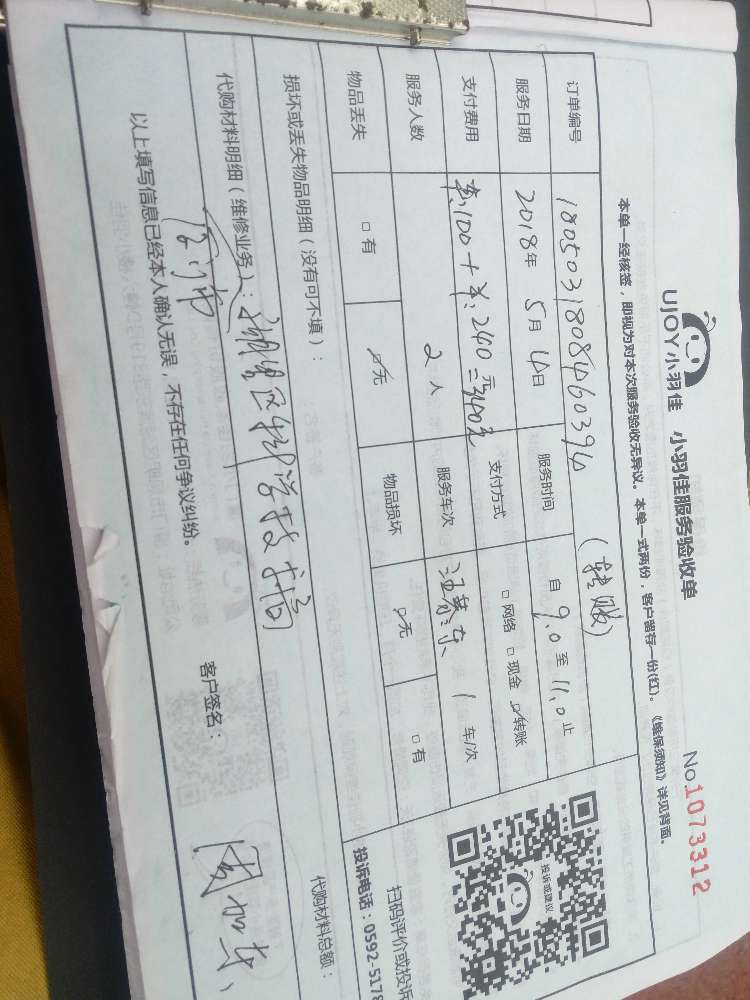 UJOY小羽佳 小羽佳服务验收单
No 1073312
本单一经核签，即视为对本次服务验收无异议。本单一式两份，客户留存一份(红)。《维保须知》详见背面。
订单编号 1805031808460394 (转账)
服务日期 2018年 5月 4日 服务时间 自 9.0 至 11.0 止
支付费用 100+ 240 = 340元 支付方式 □网络 □现金 ☑转账
服务人数 2 人 服务车次 1 车/次
物品丢失 □有 ☑无 物品损坏 ☑无 □有
投诉或建议
扫码评价或投诉
投诉电话：0592-5178
损坏或丢失物品明细（没有可不填）：
代购材料明细（维修业务）： 代购材料总额：
厦门市湖里区
以上填写信息已经本人确认无误，不存在任何争议纠纷。 客户签名：